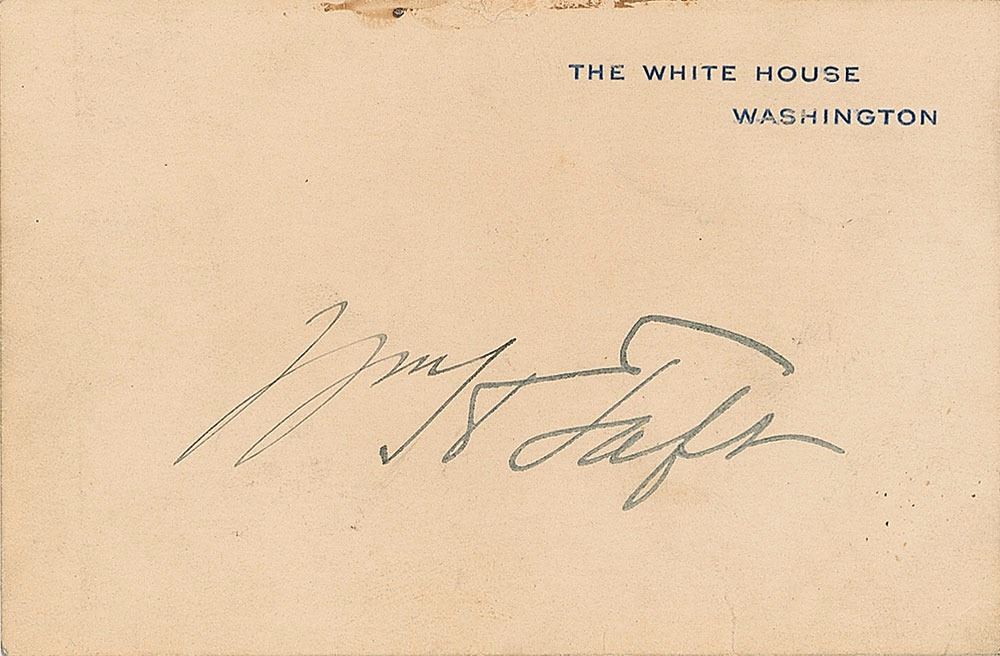 THE WHITE HOUSE
WASHINGTON
Wm H Taft